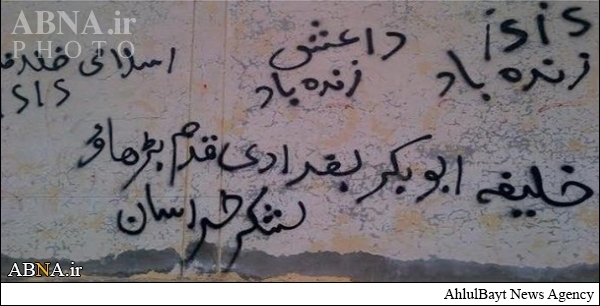 ABNA.ir
PHOTO
isis
زنده باد
داعش
زنده باد
اسلامی
ISIS
خلیفه ابوبکر بغدادی قدم بڑھاو
لشکر خراسان
ABNA.ir
AhlulBayt News Agency